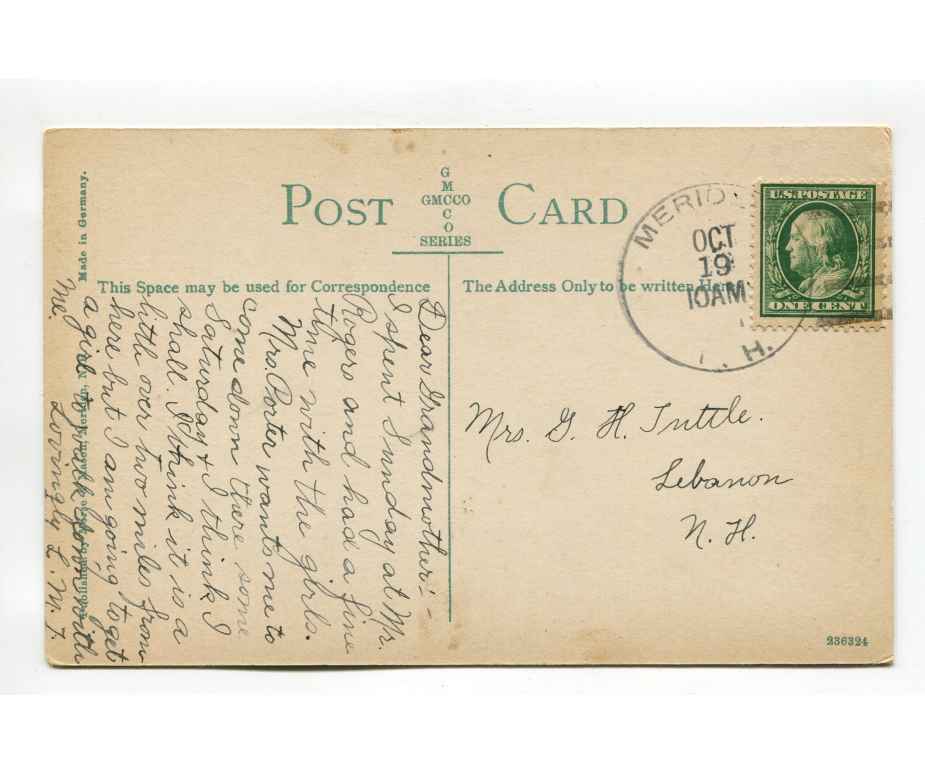 POST CARD
G
M
GMCCO
C
O
SERIES
Made in Germany.
This Space may be used for Correspondence
The Address Only to be written Here
MERID
OCT
19
10AM
. H.
U.S. POSTAGE
ONE CENT
Dear Grandmother:-
I spent Sunday at Mr.
Rogers and had a fine
time with the girls.
Mrs. Porter wants me to
come down there some
Saturday & I think I
shall. I think it is a
little over two miles from
here but I am going to get
a girl to walk down with
me.
Lovingly L. M. T.
Mrs. G. H. Tuttle.
Lebanon
N. H.
Published by
Meriden, N.
236324